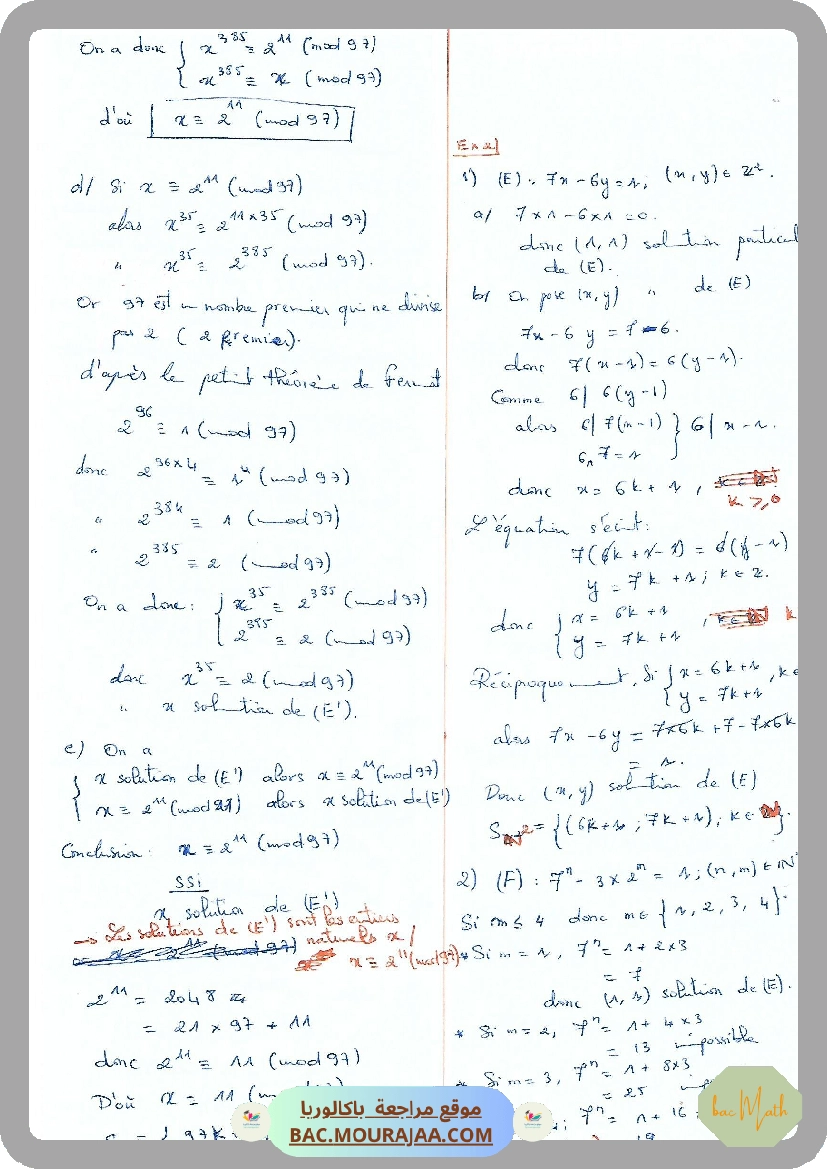 On a donc { x^385 ≡ 2^11 (mod 97)
x^385 ≡ x (mod 97)
d'où x ≡ 2^11 (mod 97)
d/ Si x ≡ 2^11 (mod 97)
alors x^35 ≡ 2^11×35 (mod 97)
" x^35 ≡ 2^385 (mod 97).
Or 97 est un nombre premier qui ne divise
pas 2 (2 premier).
d'après le petit théorème de Fermat
2^96 ≡ 1 (mod 97)
donc 2^96×4 ≡ 1^4 (mod 97)
" 2^384 ≡ 1 (mod 97)
" 2^385 ≡ 2 (mod 97)
On a donc : { x^35 ≡ 2^385 (mod 97)
2^385 ≡ 2 (mod 97)
donc x^35 ≡ 2 (mod 97)
" x solution de (E').
e) On a
{ x solution de (E') alors x ≡ 2^11 (mod 97)
x ≡ 2^11 (mod 97) alors x solution de (E')
Conclusion : x ≡ 2^11 (mod 97)
SSI
x solution de (E')
→ Les solutions de (E') sont les entiers
naturels x /
x ≡ 2^11 (mod 97)
2^11 = 2048
= 21 × 97 + 11
donc 2^11 ≡ 11 (mod 97)
D'où x ≡ 11
Ex 2
1) (E) : 7x - 6y = 1 ; (x, y) ∈ Z².
a/ 7×1 - 6×1 = 0.
donc (1, 1) solution particul
de (E).
b/ On pose (x, y) " de (E)
7x - 6y = 7 - 6.
donc 7(x - 1) = 6(y - 1).
Comme 6 | 6(y - 1)
alors 6 | 7(x - 1) } 6 | x - 1.
6 ∧ 7 = 1
donc x = 6k + 1 ,
k ≥ 0
L'équation s'écrit :
7(6k + 1 - 1) = 6(y - 1)
y = 7k + 1 ; k ∈ Z.
donc { x = 6k + 1
y = 7k + 1 , k
Réciproquement, Si { x = 6k + 1 , k ∈
y = 7k + 1
alors 7x - 6y = 7×6k + 7 - 7×6k
= 1.
Donc (x, y) solution de (E)
= {(6k + 1 ; 7k + 1) ; k ∈ }.
2) (F) : 7^n - 3 × 2^m = 1 ; (n, m) ∈ IN
Si m ≤ 4 donc m ∈ {1, 2, 3, 4}
* Si m = 1, 7^n = 1 + 2×3
= 7
donc (1, 1) solution de (E).
* Si m = 2, 7^n = 1 + 4×3
= 13 impossible
* Si m = 3, 7^n = 1 + 8×3
= 25
; 7^n = 1 + 16
موقع مراجعة باكالوريا
BAC.MOURAJAA.COM
bac Math